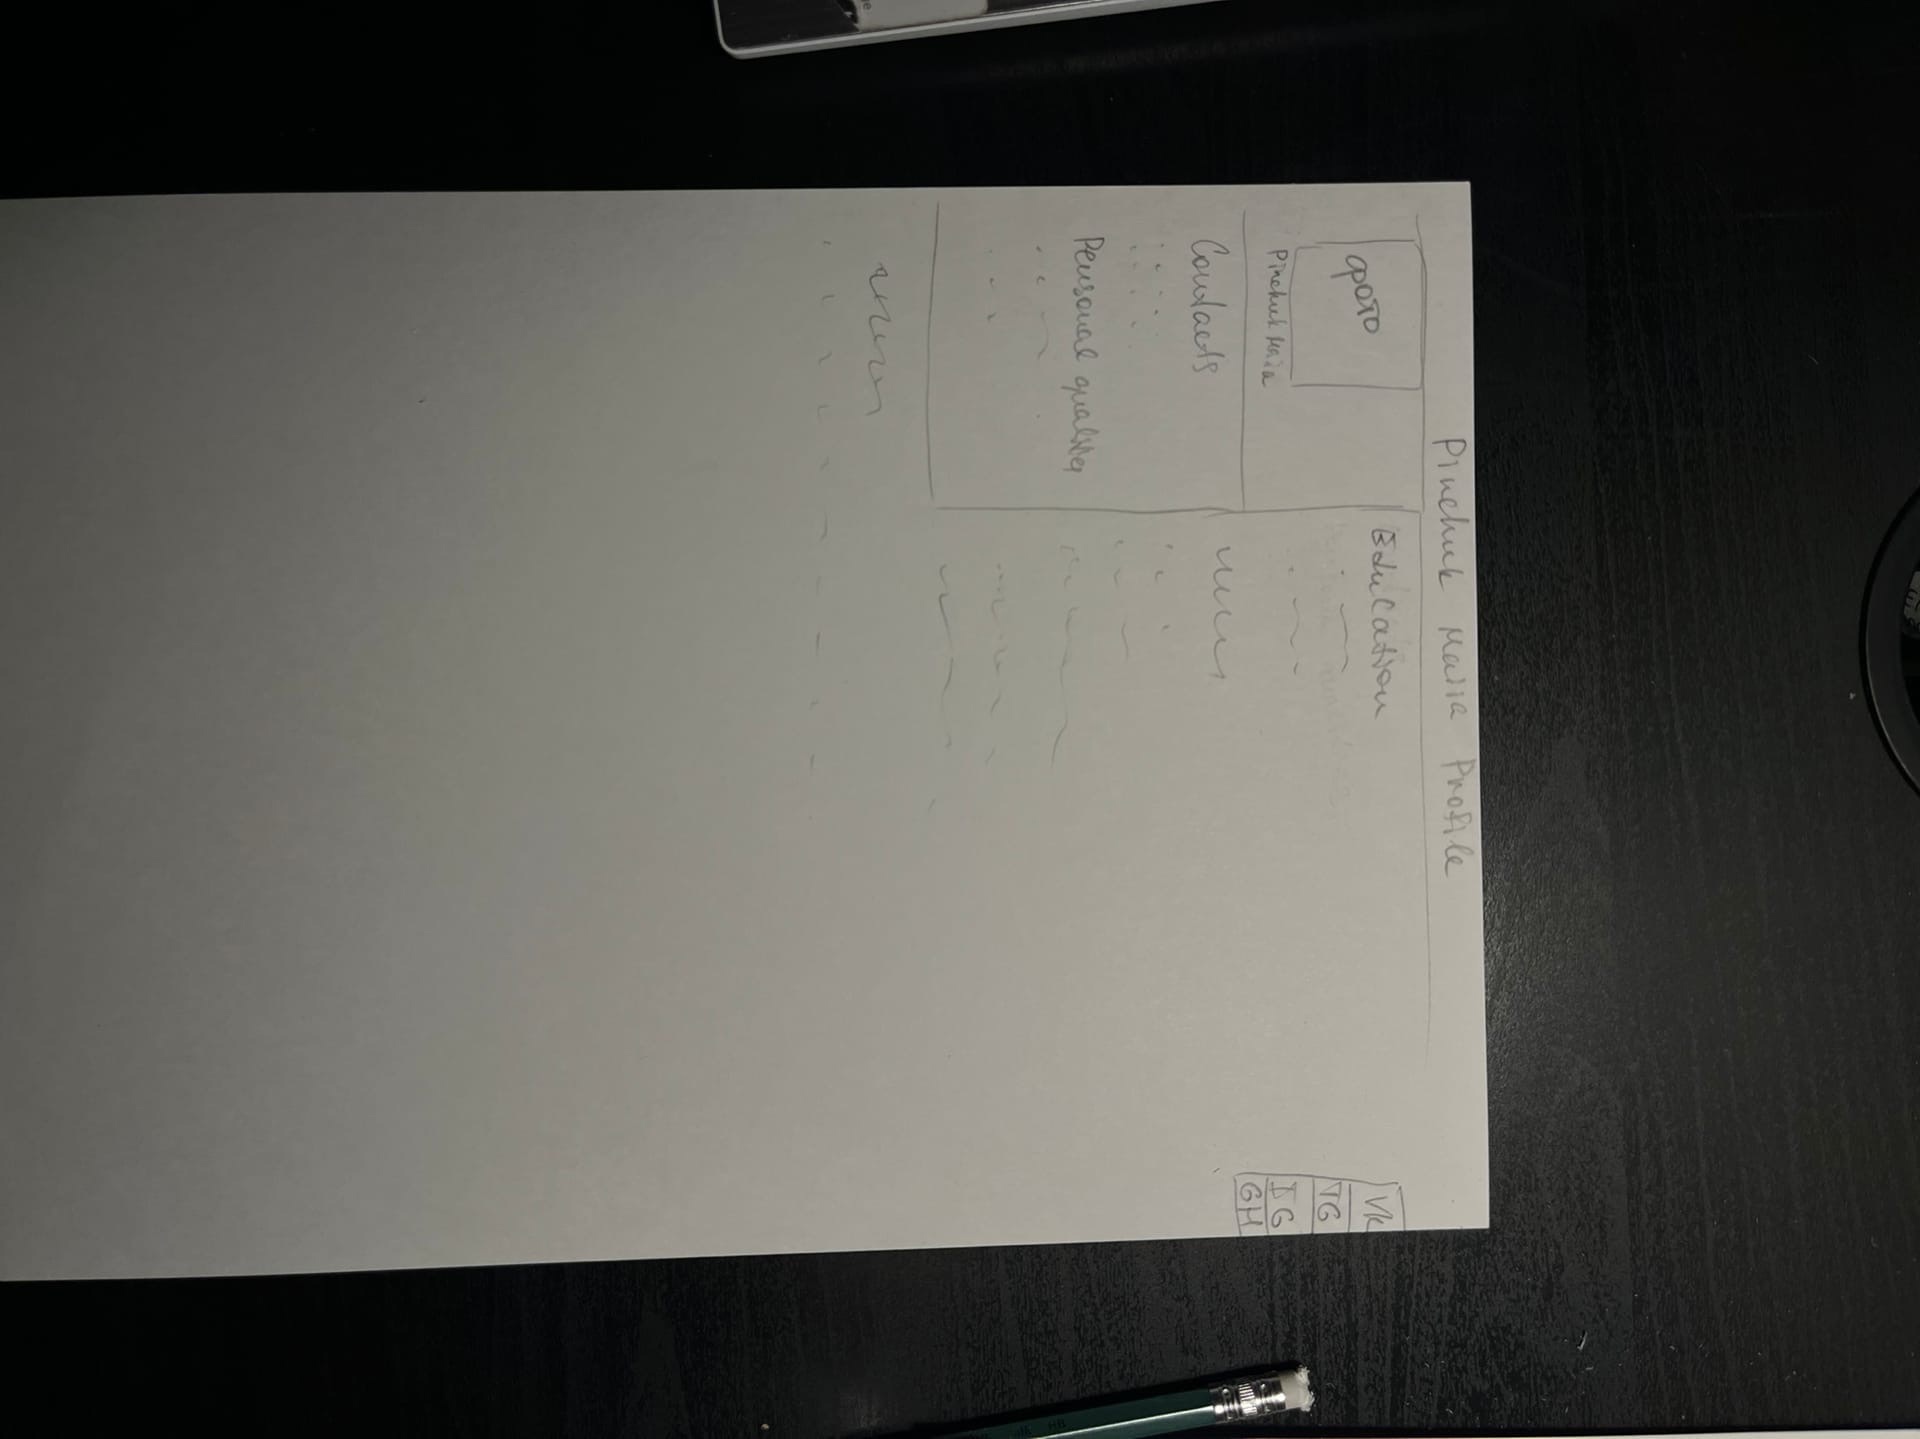 Pinchuk Maiia Profile
фото
Pinchuk Maiia
Contacts
Personal qualities
Education
VK
TG
IG
GH
HB